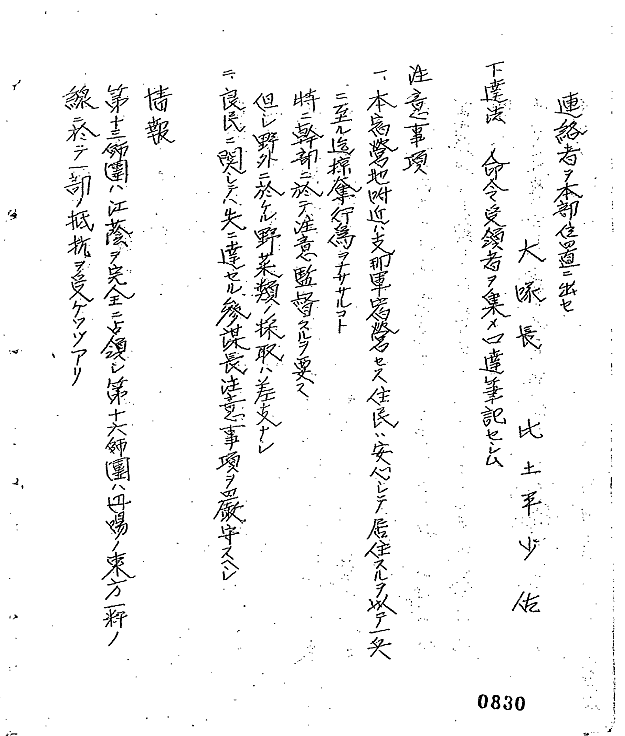 連絡者ヲ本部位置ニ出セ
大隊長 比土平少佐
下達法 命令受領者ヲ集メ口達筆記セシム
注意事項
一、本宿営地附近ハ支那軍宿営セス住民ハ安心シテ居住スルヲ以テ一兵
ニ至ル迄掠奪行為ヲナササルコト
特ニ幹部ニ於テ注意監督スルヲ要ス
但シ野外ニ於ケル野菜類ノ採取ハ差支ナシ
二、良民ニ関シテハ先ニ達セル参謀長注意事項ヲ厳守スヘシ
情報
第十三師團ハ江蔭ヲ完全ニ占領シ第十六師團ハ丹陽ノ東方一粁ノ
線ニ於テ一部ノ抵抗ヲ受ケツツアリ
0830